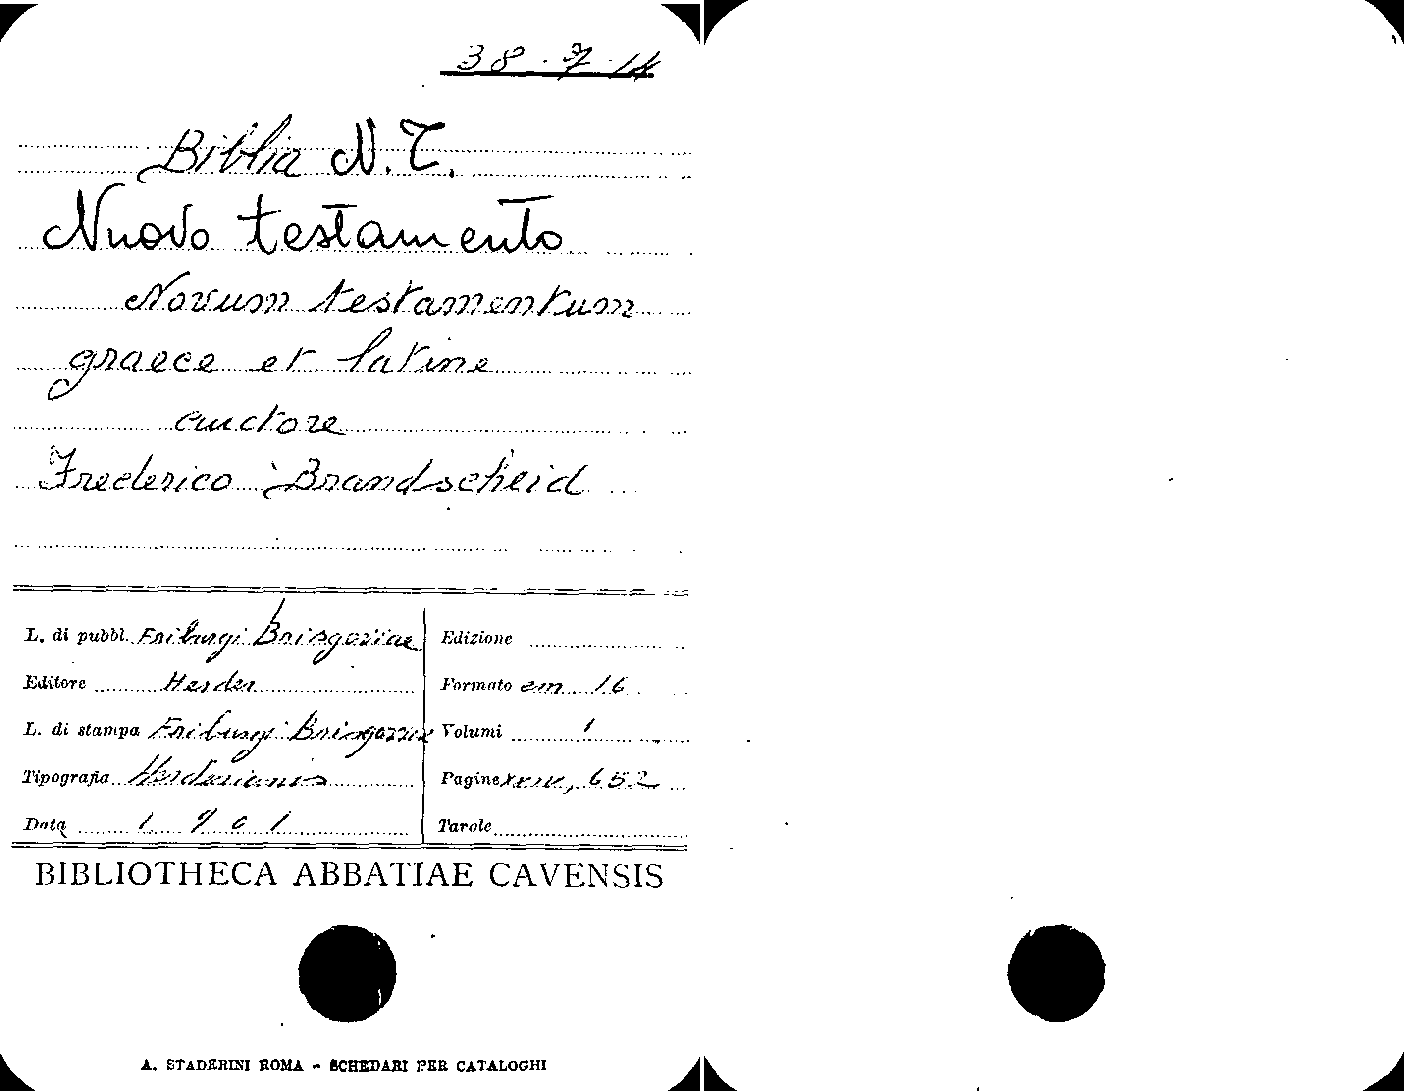 38.7.14
Biblia N.T.
Nuovo testamento
Novum testamentum
graece et latine
auctore
Frederico Brandscheid
L. di pubbl. Friburgi Brisgoviae
Editore Herder
L. di stampa Friburgi Brisgoviae
Tipografia Herderianis
Data 1901
Edizione
Formato em 16
Volumi 1
Pagine 652
Tavole
BIBLIOTHECA ABBATIAE CAVENSIS
A. STADERINI ROMA - SCHEDARI PER CATALOGHI